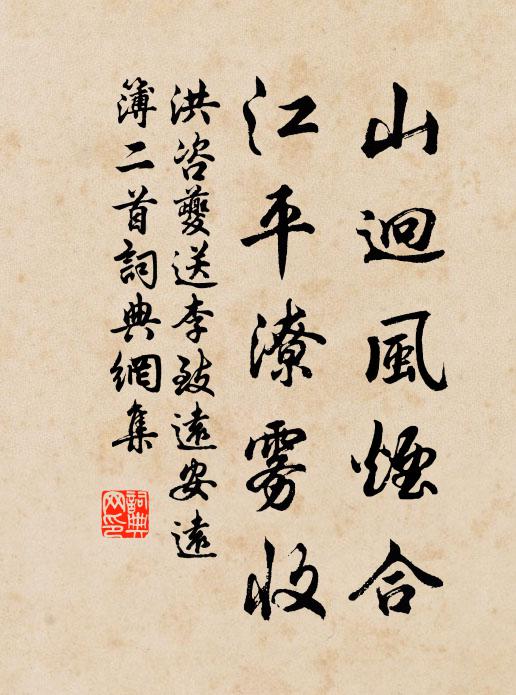 山迥風煙合
江平潦雾收
洪咨夔送李致遠安遠
簿二首詞典網集
詞典网印